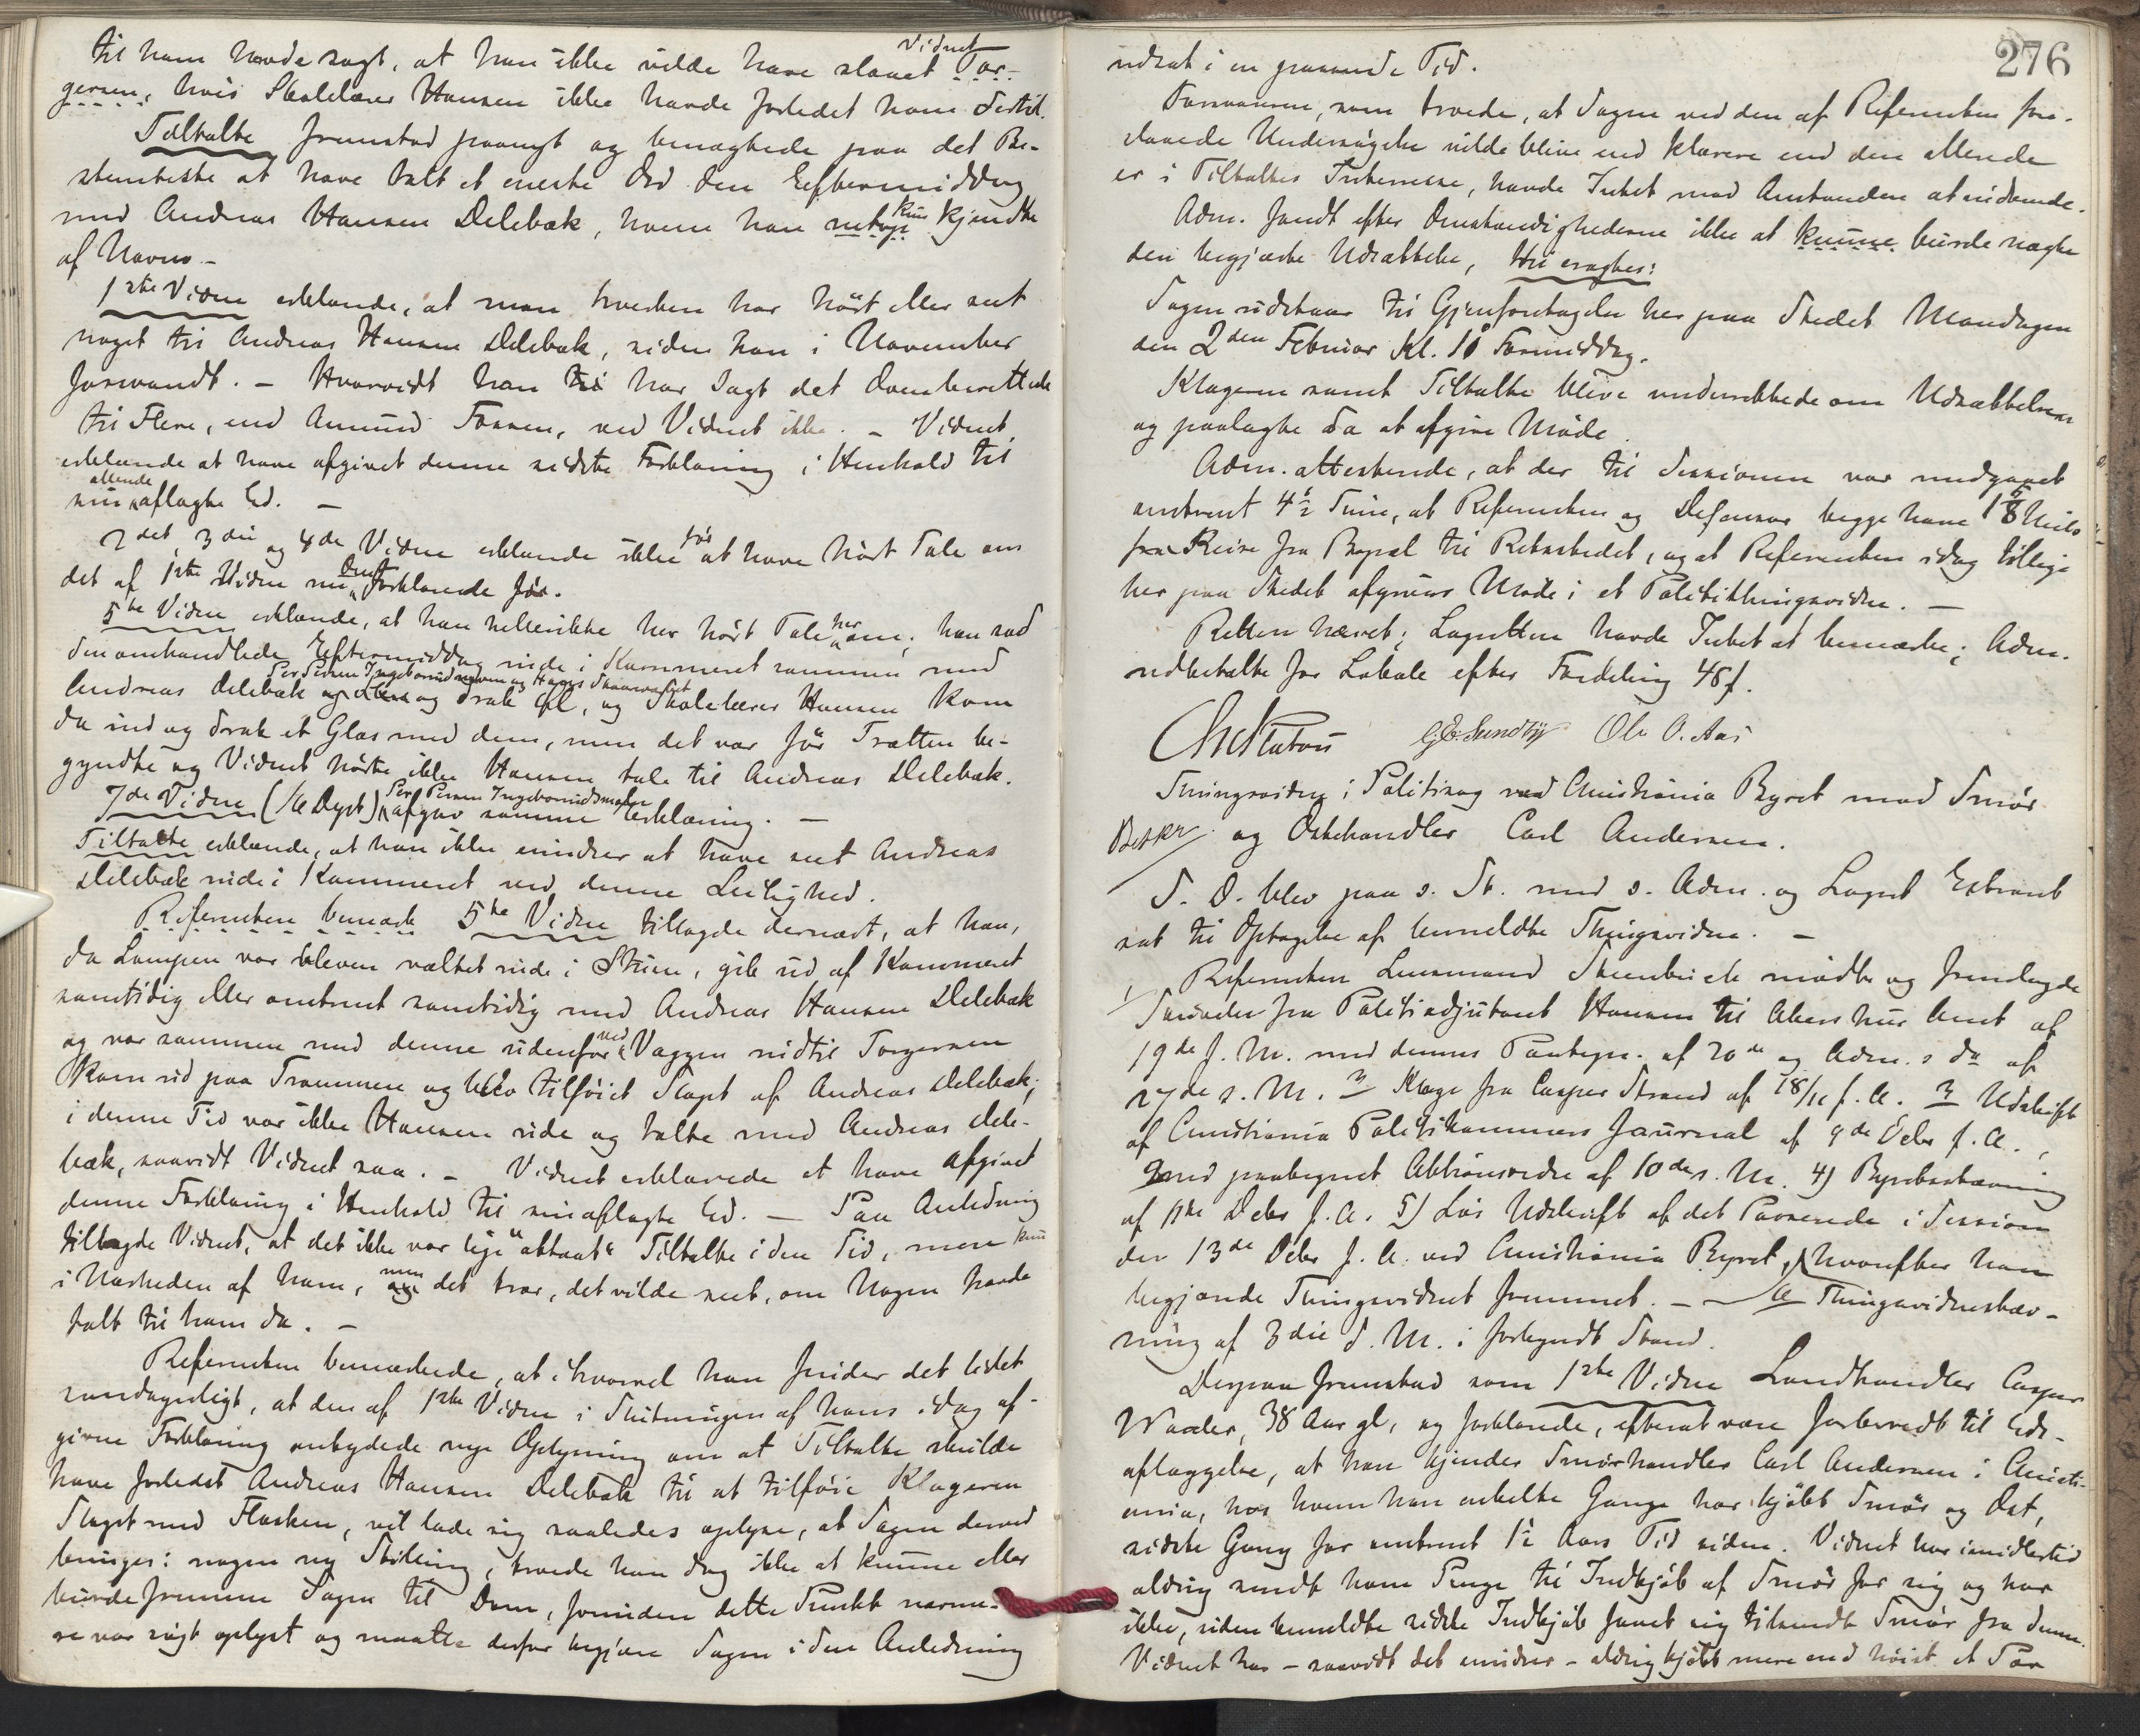 til ham havde sagt, at han ikke vilde have slaaet Vidnet Tor-
gersen, hvis Skolelærer Hansen ikke havde forledet ham dertil.
Tiltalte fremstod paanyt og benægtede paa det Be-
stemteste at have talt et eneste Ord den Eftermiddag
med Andreas Hansen Delebæk, hvem han netop kun kjendte
af Navn. –
1ste Vidne erklærede, at man hverken har hørt eller seet
noget til Andreas Hansen Delebæk, siden han i November
forsvandt. – Hvorvidt han har sagt det Ovenberettede
til Flere, end Amund Fossen, ved Vidnet ikke. – Vidnet
erklærede at have afgivet denne sidste Forklaring i Henhold til
sin allerede aflagte Ed. –
2det, 3die og 4de Vidne erklærede ikke før at have hørt Tale om
det af 1ste Vidne nu Forklarede før.
5te Vidne erklærede, at han hellerikke har hørt Tale her om; han sad
den omhandlede Eftermiddag inde i Kammeret sammen med
Per Persen Ingeborrudsmoen og Hans
Andreas Delebæk og drak Øl, og Skolelærer Hansen kom
da ind og drak et Glas med dem, men det var før Trætten be-
gyndte og Vidnet hørte ikke Hansen tale til Andreas Delebæk.
7de Vidne Per Persen Ingeborrudsmoen afgav samme Erklæring. –
Tiltalte erklærede, at han ikke mindes at have seet Andreas
Delebæk inde i Kammeret ved denne Leilighed.
Referenten bemærk 5te Vidne tillagde dernæst, at han,
da Lampen var bleven væltet inde i Stuen, gik ud af Kammeret
samtidig eller omtrent samtidig med Andreas Hansen Delebæk
og var sammen med denne udenfor ved Væggen indtil Torgersen
kom ud paa Trammen og blev tilføiet Slaget af Andreas Delebæk;
i denne Tid var ikke Hansen ude og talte med Andreas Dele-
bæk, saavidt Vidnet saa. – Vidnet erklærede at have afgivet
denne Forklaring i Henhold til sin aflagte Ed. – Paa Anledning
tillagde Vidnet, at det ikke var lige "attaat" Tiltalte i den Tid, men kun
i Nærheden af ham, men det tror, det vilde seet, om Nogen havde
talt til ham da. –
Referenten bemærkede, at ihvorvel han finder det lidet
sandsynligt, at den af 1ste Vidne i Slutningen af hans idag af-
givne Forklaring antydede nye Oplysning om at Tiltalte skulde
have forledet Andreas Hansen Delebæk til at tilføie Klageren
Slaget med Flasken, vil lade sig saaledes oplyse, at Sagen derved
bringes i nogen ny Stilling, troede han dog ikke at kunne eller
burde fremme Sagen til Dom, forinden dette Punkt nærme-
re var søgt oplyst og maatte derfor begjære Sagen i den Anledning
276
udsat i en passende Tid.
Defensoren, som troede, at Sagen ved den af Referenten fore-
slaaede Undersøgelse vilde blive end klarere end den allerede
er i Tiltaltes Interesse, havde Intet mod Anstanden at indvende.
Adm. fandt efter Omstændighederne ikke at kunne burde nægte
den begjærte Udsættelse, thi eragtes:
Sagen udstaar til Gjenforetagelse her paa Stedet Mandagen
den 2den Februar Kl. 10 Formiddag.
Klageren samt Tiltalte bleve underrettede om Udsættelsen
og paalagte da at afgive Møde.
Adm. attesterede, at der til Sessionen var medgaaet
omtrent 4½ Time, at Referenten og Defensor begge have 1⅝ Miils
Reise fra Bopæl til Retsstedet, og at Referenten idag tillige
her paa Stedet afgiver Møde i et Politithingsvidne. –
Retten hævet; Lagretten havde Intet at bemærke; Adm.
udbetalte for Lokale efter Fordeling 48 f.
G. E. Sundby Ole O. Aas
Thingsvidne i Politisag ved Christiania Byret mod Smør
Beskr. og Ostehandler Carl Andersen.
S. D. blev paa s. St. med s. Adm. og Lagret Extraret
sat til Optagelse af bemeldte Thingsvidne. –
Referenten Lensmand Steenbeck mødte og fremlagde
1 Skrivelse fra Politiadjutant Hansen til Akershus Amt af
19de f. M. med dennes Paategn. af 20de og Adm.s do af
27de s. M. 2 Klage fra Casper Strand af 18/11 f. A. 3 Udskrift
af Christiania Politikammers Journal af 9de Decbr f. A.,
med paategnet Attionsordre af 10de s. M. 4) Byretsstævning
af 11te Decbr f. A. 5) Løs Udskrift af det Passerede i Session
den 13de Decbr f. A. ved Christiania Byret, hvorefter han
begjærede Thingsvidnet fremmet. – Thingsvidnestæv-
ning af 3die d. M. i forkyndt Stand.
Derpaa fremstod som 1ste Vidne Landhandler Casper
38 Aar gl, og forklarede, efterat være forberedt til Eds-
aflæggelse, at han kjender Smørhandler Carl Andersen i Christi-
ania, hos hvem han enkelte Gange har kjøbt Smør og Ost,
sidste Gang for omtrent 1½ Aars Tid siden. Vidnet har imidlertid
aldrig sendt ham Penge til Indkjøb af Smør for sig og har
ikke, siden bemeldte sidste Indkjøb faaet sig tilsendt Smør fra denne.
Vidnet har – saavidt det mindes – aldrig kjøbt mere end høist et Par